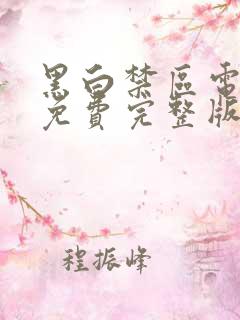 黑白禁区电
免费完整版
程振峰